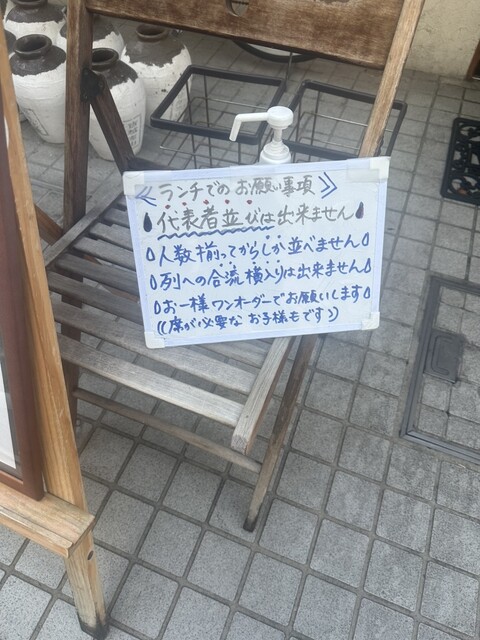 ≪ランチでのお願い事項≫
代表者並びは出来ません
人数揃ってからしか並べません
列への合流横入りは出来ません
お一様ワンオーダーでお願いします
(席が必要なお子様もです)